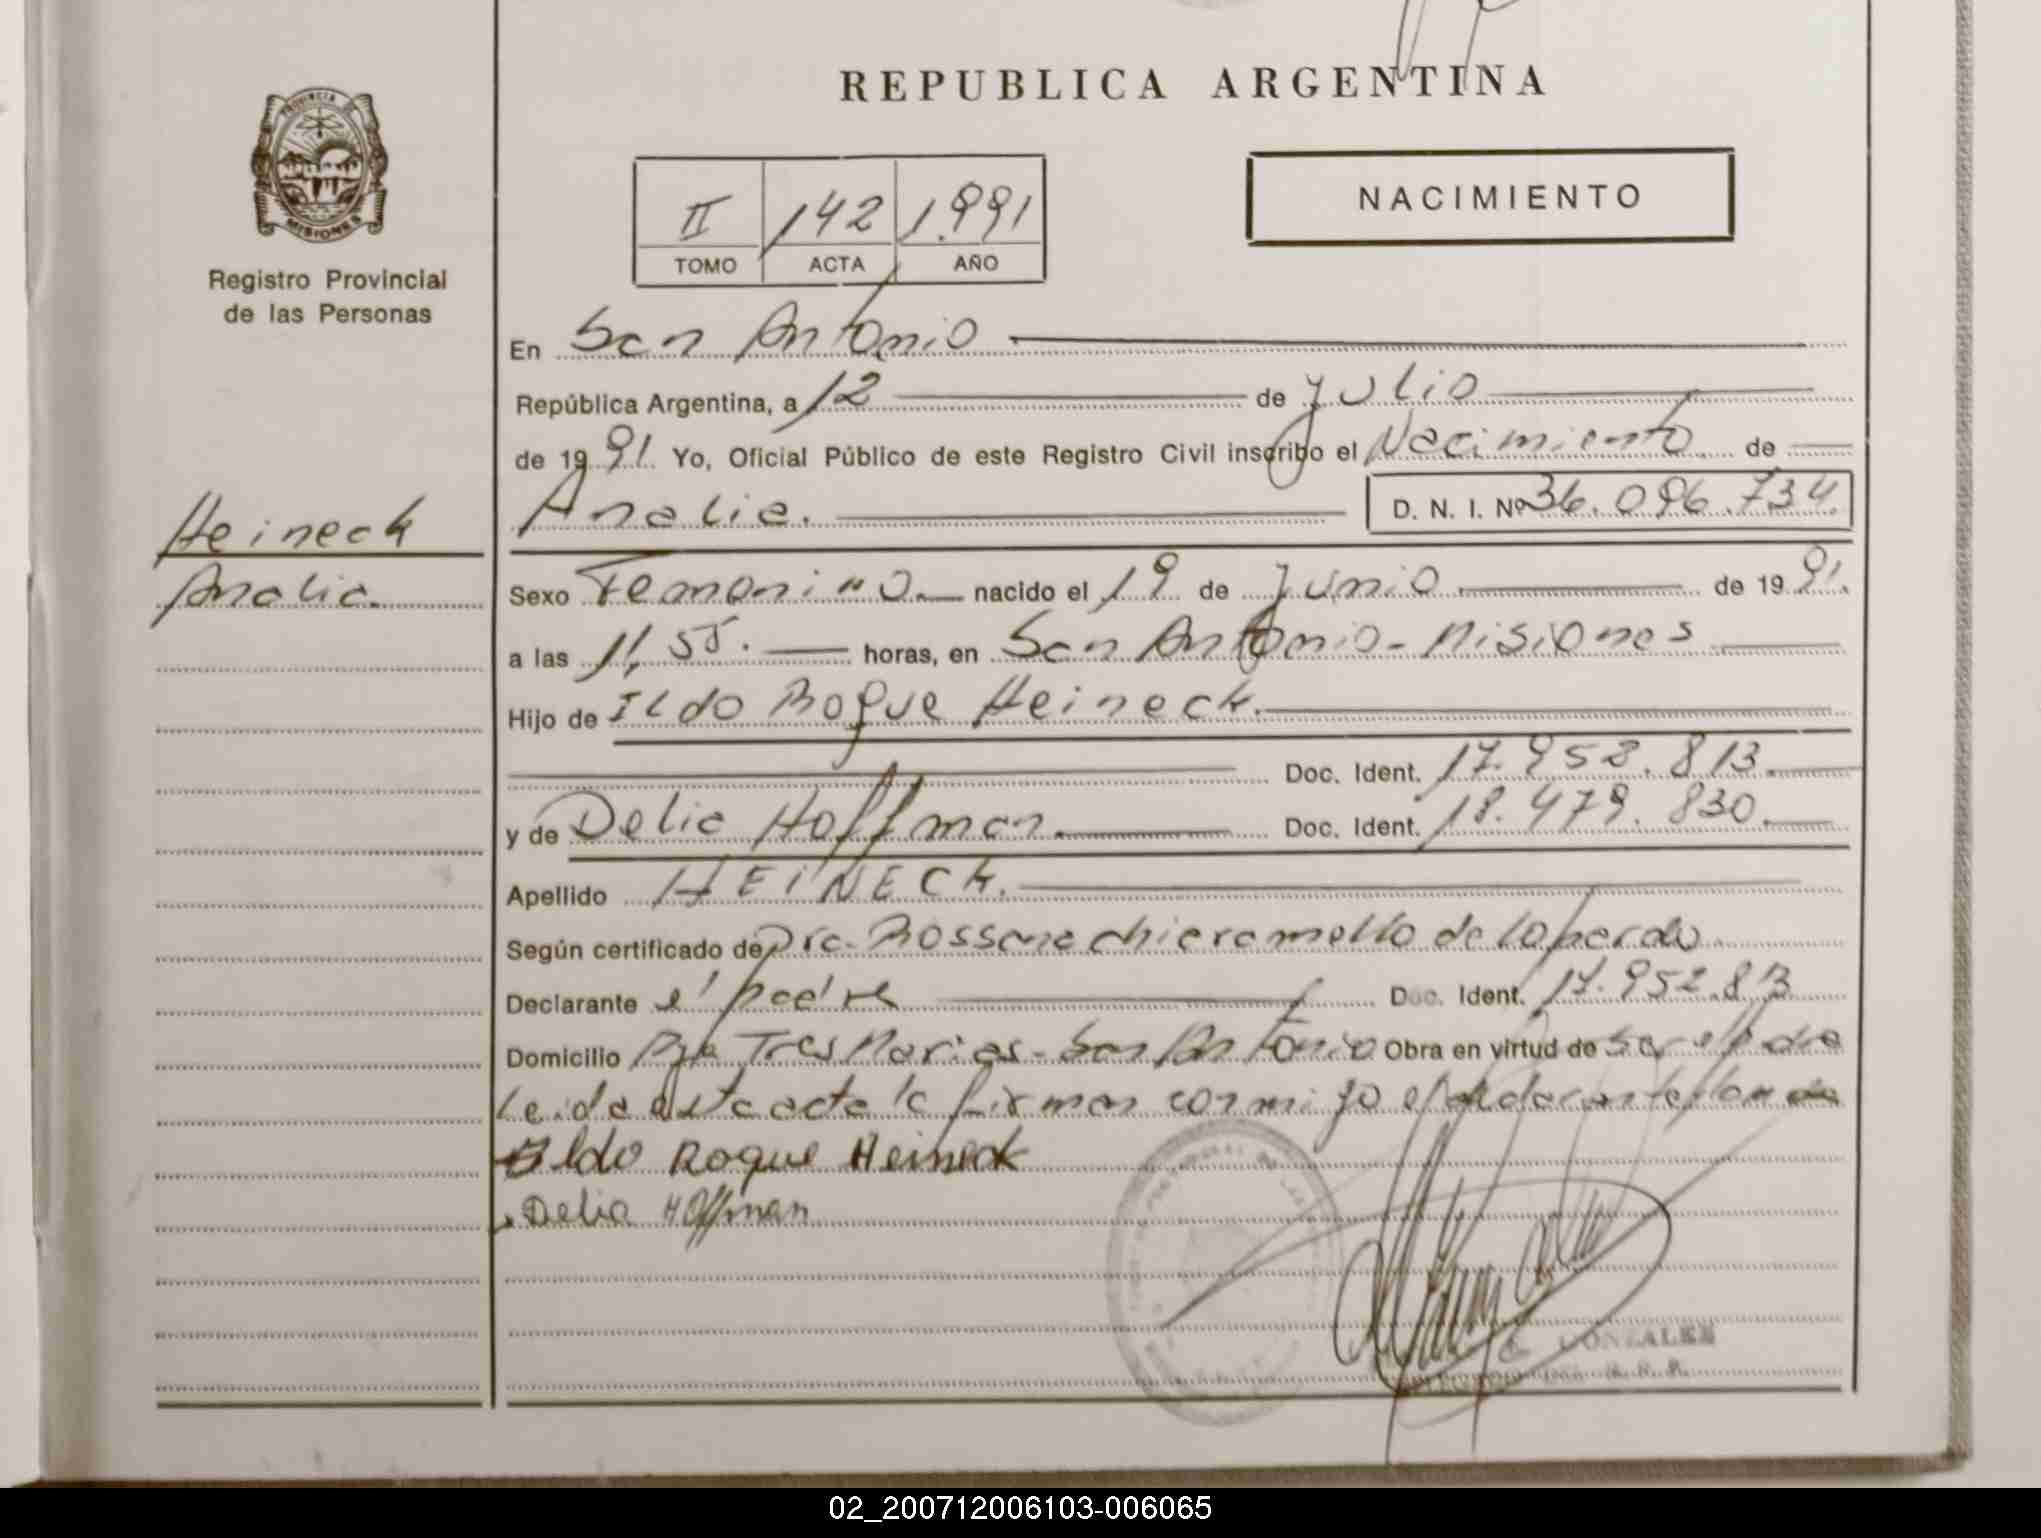 REPUBLICA ARGENTINA
PROVINCIA DE
MISIONES
Registro Provincial
de las Personas
II 142 1.991
TOMO ACTA AÑO
NACIMIENTO
En San Antonio
República Argentina, a 12 de Julio
de 1991. Yo, Oficial Público de este Registro Civil inscribo el Nacimiento de
Analia. D. N. I. Nº 36.096.734.
Heineck
Analia.
Sexo Femenino. nacido el 19 de Junio de 1991.
a las 11,55. horas, en San Antonio - Misiones
Hijo de Ildo Roque Heineck.
Doc. Ident. 17.952.813.
y de Delia Hoffman. Doc. Ident. 18.479.830.
Apellido HEINECK.
Según certificado de Dra. Rossana Chiaramello de
Declarante el padre Doc. Ident. 17.952.813
Domicilio Pje Tres Marias - San Antonio Obra en virtud de ser el padre
Leida esta acta la firman conmigo el declarante
Ildo Roque Heineck
Delia Hoffman
GONZALEZ
02_200712006103-006065